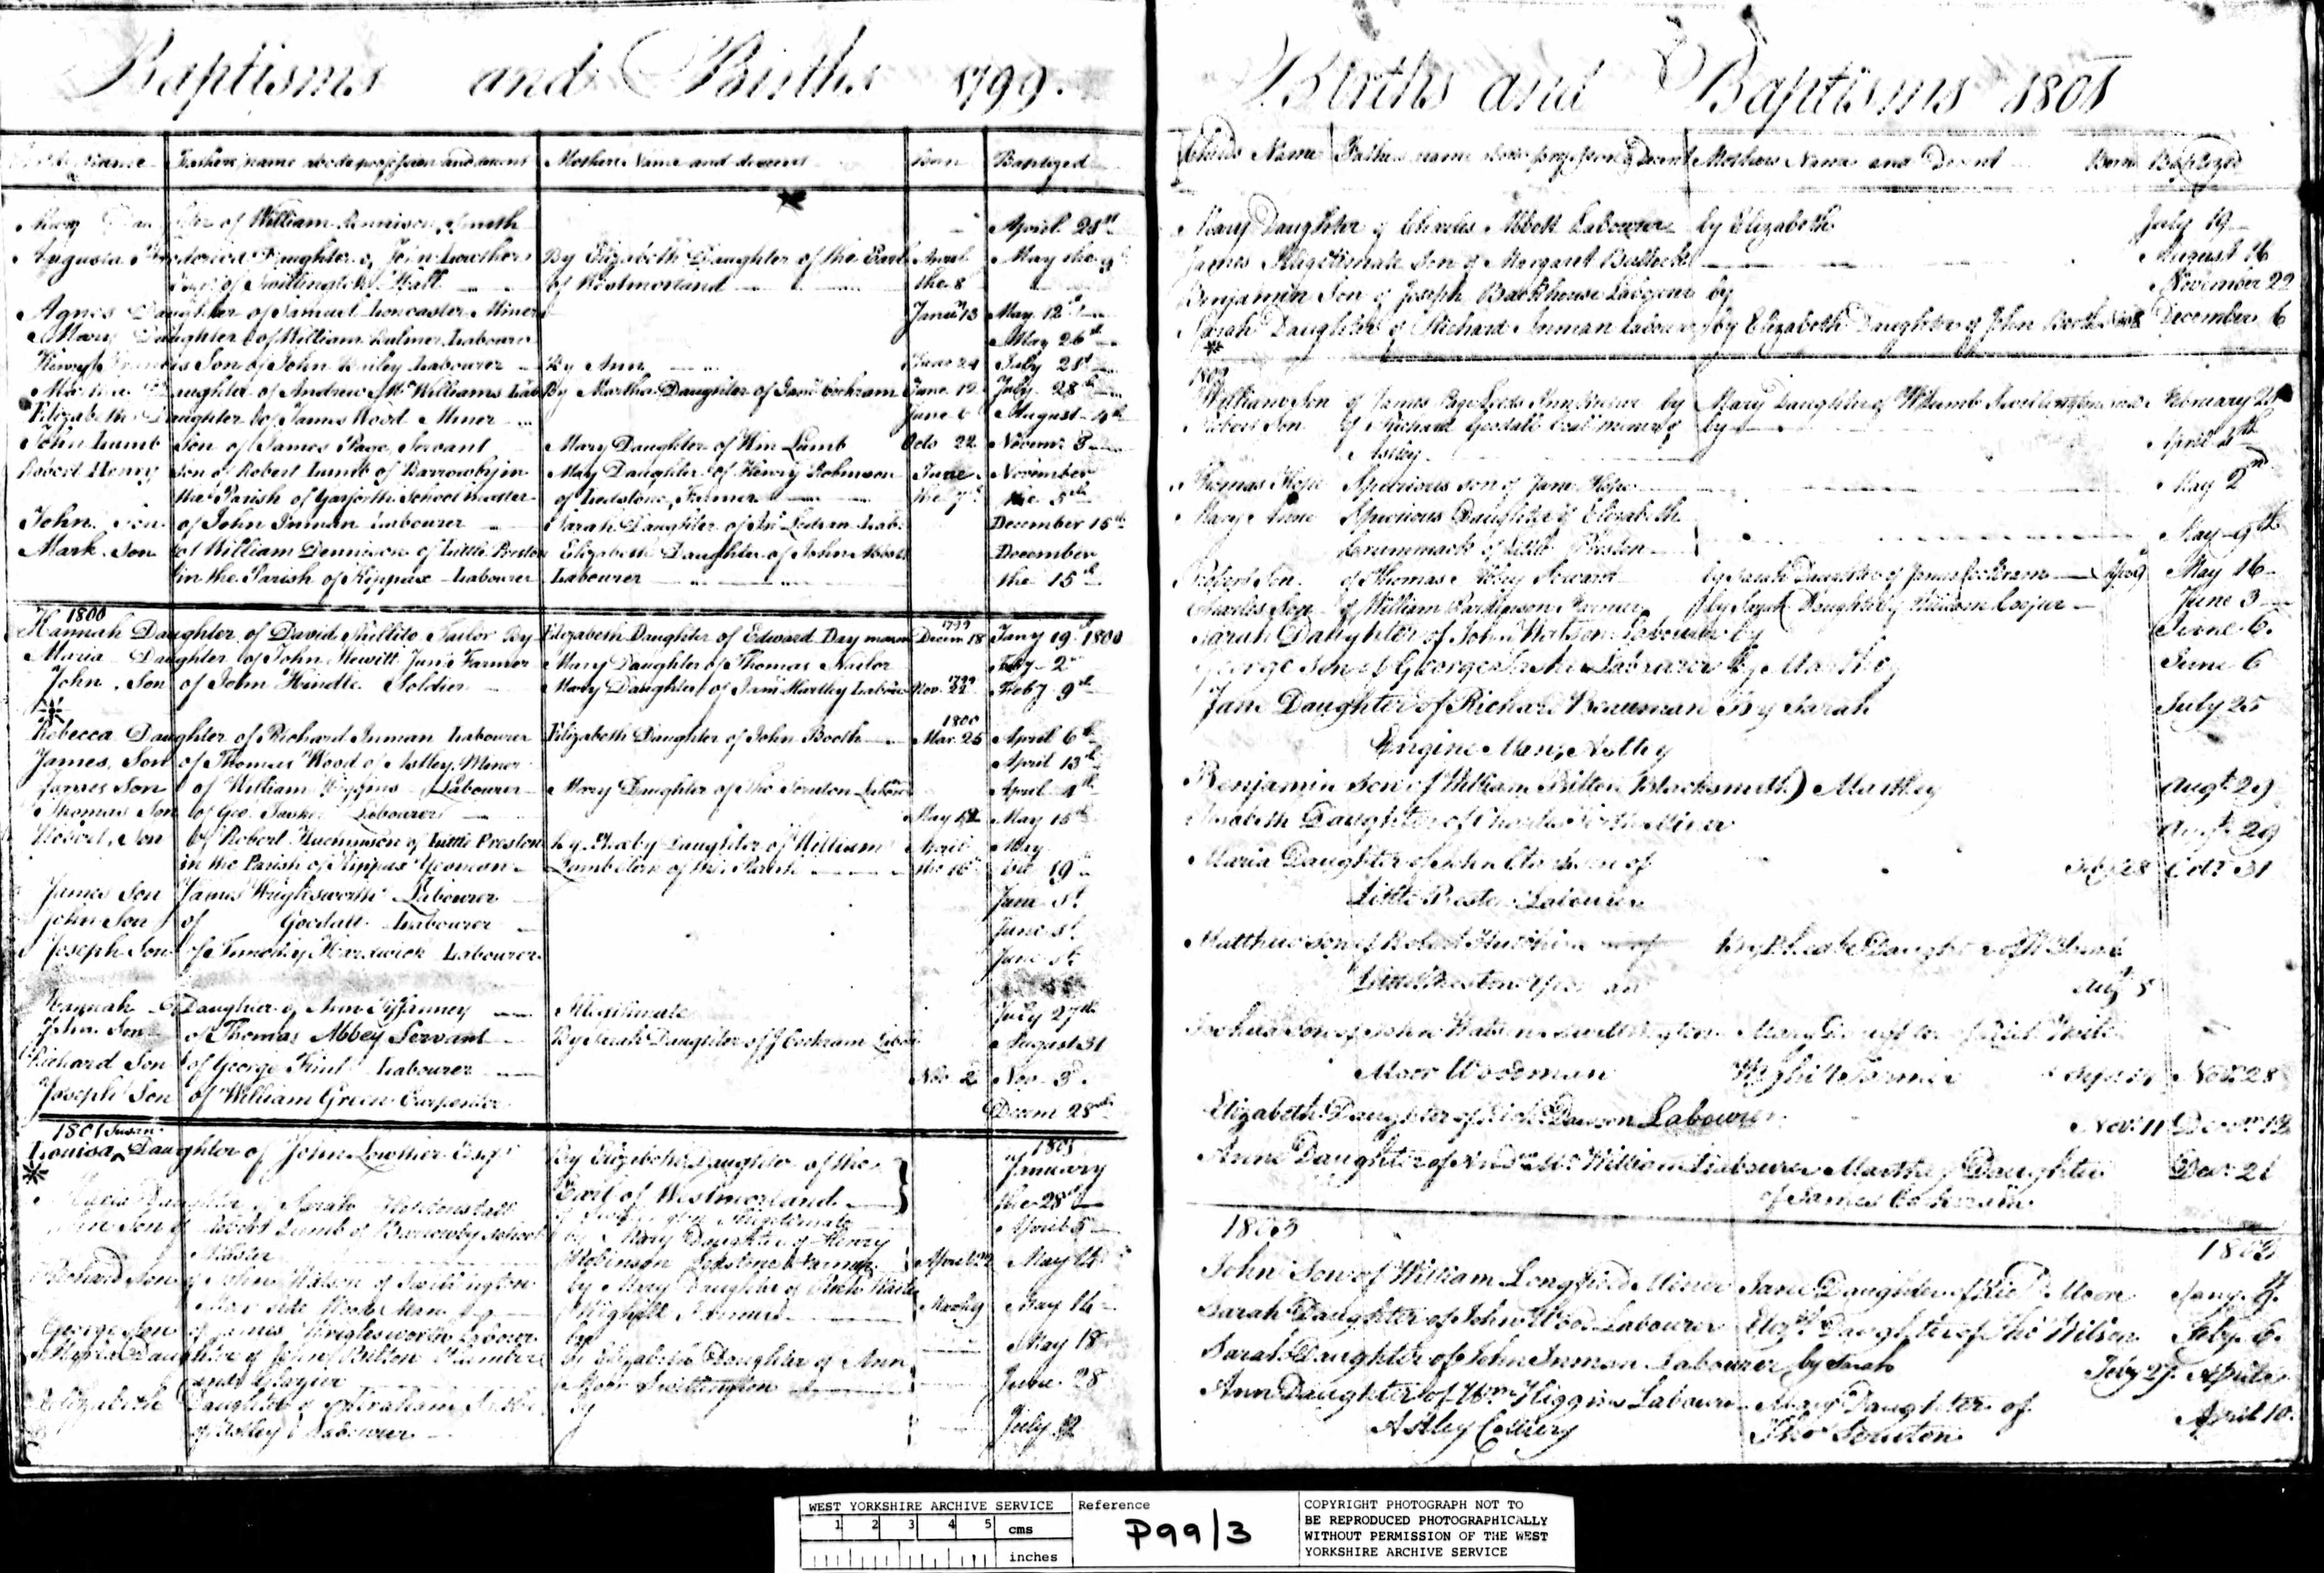 Baptisms and Births 1799.
Name Fathers name abode profession and descent Mothers Name and descent Born Baptized
Mary Daughter of William Dennison Smith April 28th
Augusta Frederica Daughter of John Lowther By Elizabeth Daughter of the Earl April May the
Esqr of Swillington Hall of Westmorland the 8
Agnes Daughter of Samuel Loncaster Miner 13 May 12th
Mary Daughter of William Bulmer Labourer May 26th
Henry Francis Son of John Labourer By Ann June 24 July 28th
Martha Daughter of Andrew Mc Williams Lab By Martha Daughter of Jams Cockram June 12 July 28th
Elizabeth Daughter of James Wood Miner June 6 August 4th
John Lumb Son of James Page, Servant Mary Daughter of Wm Lumb Octo 22 Novemr 3
Robert Henry Son of Robert Lumb of Barrowby in Mary Daughter of Henry Robinson June November
the Parish of Garforth School master of Ledstone, Farmer the 7th the 5th
John Son of John Inman Labourer Sarah Daughter of Lab. December 15th
Mark Son of William Dennison of Little Preston Elizabeth Daughter of John Abbott December
in the Parish of Kippax Labourer Labourer the 15th
1800
Hannah Daughter of David Shillito Tailor By Elizabeth Daughter of Edward Day mason 1799 Decem 18 Jany 19th 1800
Maria Daughter of John Hewitt Junr Farmer Mary Daughter of Thomas Nailor Feby 2nd
John Son of John Hindle Soldier Mary Daughter of Sam Hartley Labour Nov. 1799 22 Feby 9th
1800
Rebecca Daughter of Richard Inman Labourer Elizabeth Daughter of John Booth Mar. 25 April 6th
James Son of Thomas Wood of Astley Miner April 13th
James Son of William Higgins Labourer Mary Daughter of Tho Scruton Labour April
Thomas Son of Geo. Tasker Labourer May May 18th
Robert Son of Robert Hutchinson of Little Preston by Phoeby Daughter of William April May
in the Parish of Kippax Yeoman Lambeton of this Parish the the 19th
James Son James Wriglesworth Labourer June
John Son of Goodall Labourer June
Joseph Son of Timothy Hardwick Labourer June
Hannah Daughter of Ann Illigitimate July 27th
John Son of Thomas Abbey Servant By Sarah Daughter of J Cockram Labor August 31
Richard Son of George Flint Labourer Nov. 2 Nov. 3d.
Joseph Son of William Green Carpenter Decem 28th
1801 Susan
Louisa Daughter of John Lowther Esqr By Elizabeth Daughter of the 1801 January
Earl of Westmorland the 28th
Maria Daughter of Sarah Illegitimate April 5
Son of Robert Lumb of Barrowby School by Mary Daughter of Henry
Master Robinson Ledstone Farmer April May
Richard Son of John Watson of Swillington by Mary Daughter of Rich
Moor side Wood Man by Farmer May 14
George Son of James Wriglesworth Labour by May 18
Maria Daughter of John Britton Plumber by Elizabeth Daughter of Ann
and Glazier Moor Swillington June 28
Elizabeth Daughter of Abraham
of Astley Labourer July 12
Births and Baptisms 1801
Childs Name Fathers name abode profession & Descent Mothers Name and Descent Born Baptized
Mary Daughter of Charles Abbott Labourer by Elizabeth July 19
James Illegetimate Son of Margaret Bullock August 16
Benjamin Son of Joseph Backhouse Labourer by November 22
Sarah Daughter of Richard Inman Labourer by Elizabeth Daughter of John Booth December 6
1802
William Son of James Page Leeds Innkeeper by Mary Daughter of W Lumb Swillington February 21
Robert Son of Richard Goodall Coal miner by
Astley April 4th
Thomas Hope Spurious son of Jane Hope May 2nd
Mary Anne Spurious Daughter of Elizabeth
Crummack of Little Preston May 9th
Robert Son of Thomas Abbey Servant by Sarah Daughter of James Cockram May 16
Charles Son of William Parkinson Farmer by Sarah Daughter of William Cooper June 3
Sarah Daughter of John Watson Labourer by June 6.
George Son of George Labourer by Martha June 6
Jane Daughter of Richard By Sarah July 25
Engine Man, Astley
Benjamin Son of William Britton Blacksmith) Marthey Augt 29
Elisabeth Daughter of Charles Miner Augt 29
Maria Daughter of John of 28 Octr 31
Little Preston Labourer
Matthew Son of Robert Hutchinson of By Phoebe Daughter of
Little Preston Yeoman Augt 5
Joshua Son of John Watson Swillington Mary Daughter of
Moor Woodman Farmer Sept Novr 28
Elizabeth Daughter of Richd Dawson Labourer Novr 11 Decemr 12
Anne Daughter of Andw Mc William Labourer Martha Daughter Decr 21
of James Cockram
1803 1803
John Son of William Longfield Miner Jane Daughter of Richd Moon Jany 9.
Sarah Daughter of John Wood Labourer Elizth Daughter of Tho Wilson Feby 6.
Sarah Daughter of John Inman Labourer by Sarah Feby 27. April
Ann Daughter of Wm Higgins Labourer Mary Daughter of April 10.
Astley Colliery Thos Scruton
WEST YORKSHIRE ARCHIVE SERVICE
1 2 3 4 5 cms
inches
Reference
P99/3
COPYRIGHT PHOTOGRAPH NOT TO
BE REPRODUCED PHOTOGRAPHICALLY
WITHOUT PERMISSION OF THE WEST
YORKSHIRE ARCHIVE SERVICE